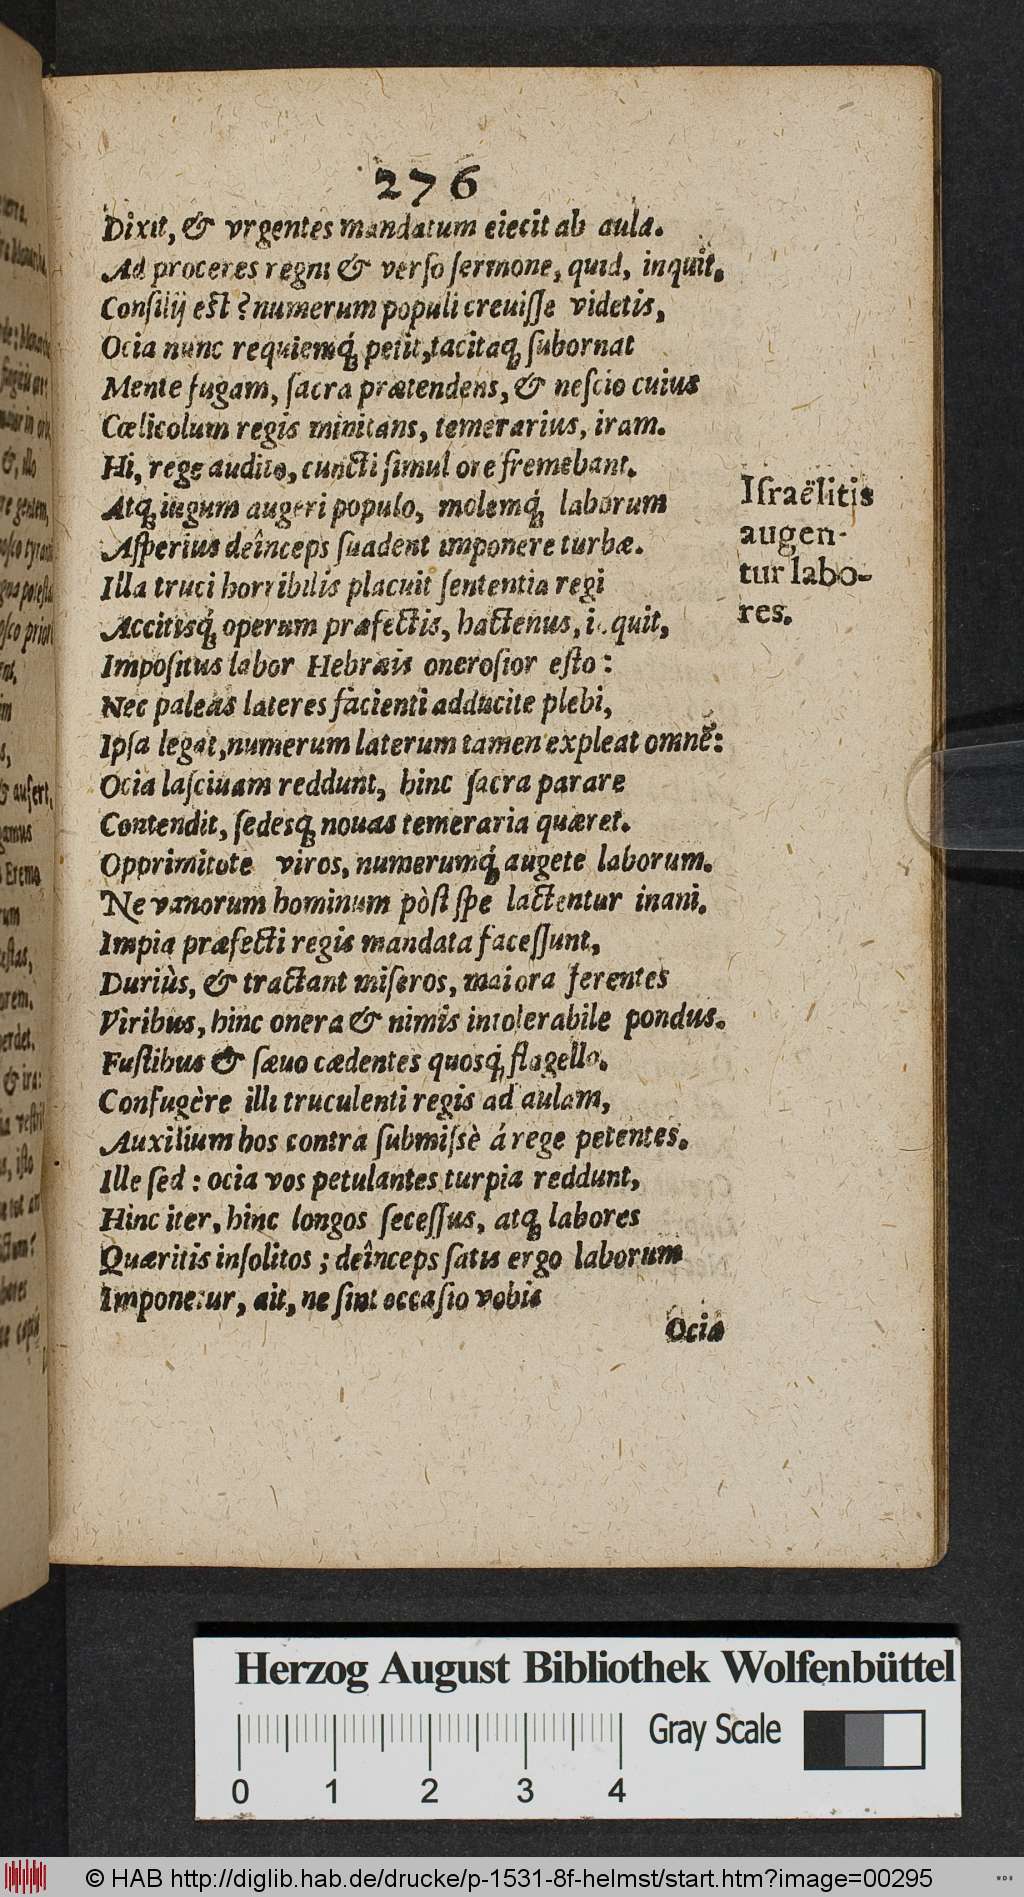 276
Dixit, & vrgentes mandatum eiecit ab aula.
Ad proceres regni & verso sermone, quid, inquit,
Consilij est? numerum populi creuisse videtis,
Ocia nunc requiemq́; petit, tacitaq; subornat
Mente fugam, sacra prætendens, & nescio cuius
Cœlicolum regis minitans, temerarius, iram.
Hi, rege audito, cuncti simul ore fremebant.
Atq; iugum augeri populo, molemq́; laborum
Asperius deînceps suadent imponere turbæ.
Illa truci horribilis placuit sententia regi
Accitisq́; operum præfectis, hactenus, inquit,
Impositus labor Hebræis onerosior esto:
Nec paleas lateres facienti adducite plebi,
Ipsa legat, numerum laterum tamen expleat omnē:
Ocia lasciuam reddunt, hinc sacra parare
Contendit, sedesq; nouas temeraria quæret.
Opprimitote viros, numerumq́; augete laborum.
Ne vanorum hominum pòst spe lactentur inani.
Impia præfecti regis mandata facessunt,
Duriùs, & tractant miseros, maiora ferentes
Viribus, hinc onera & nimis intolerabile pondus.
Fustibus & sæuo cædentes quosq́; flagello.
Confugère illi truculenti regis ad aulam,
Auxilium hos contra submissè á rege petentes.
Ille sed: ocia vos petulantes turpia reddunt,
Hinc iter, hinc longos secessus, atq; labores
Quæritis insolitos; deînceps satis ergo laborum
Imponetur, ait, ne sint occasio vobis
Ocia
Israëlitis
augen-
tur labo-
res.
Herzog August Bibliothek Wolfenbüttel
Gray Scale
0 1 2 3 4
© HAB http://diglib.hab.de/drucke/p-1531-8f-helmst/start.htm?image=00295